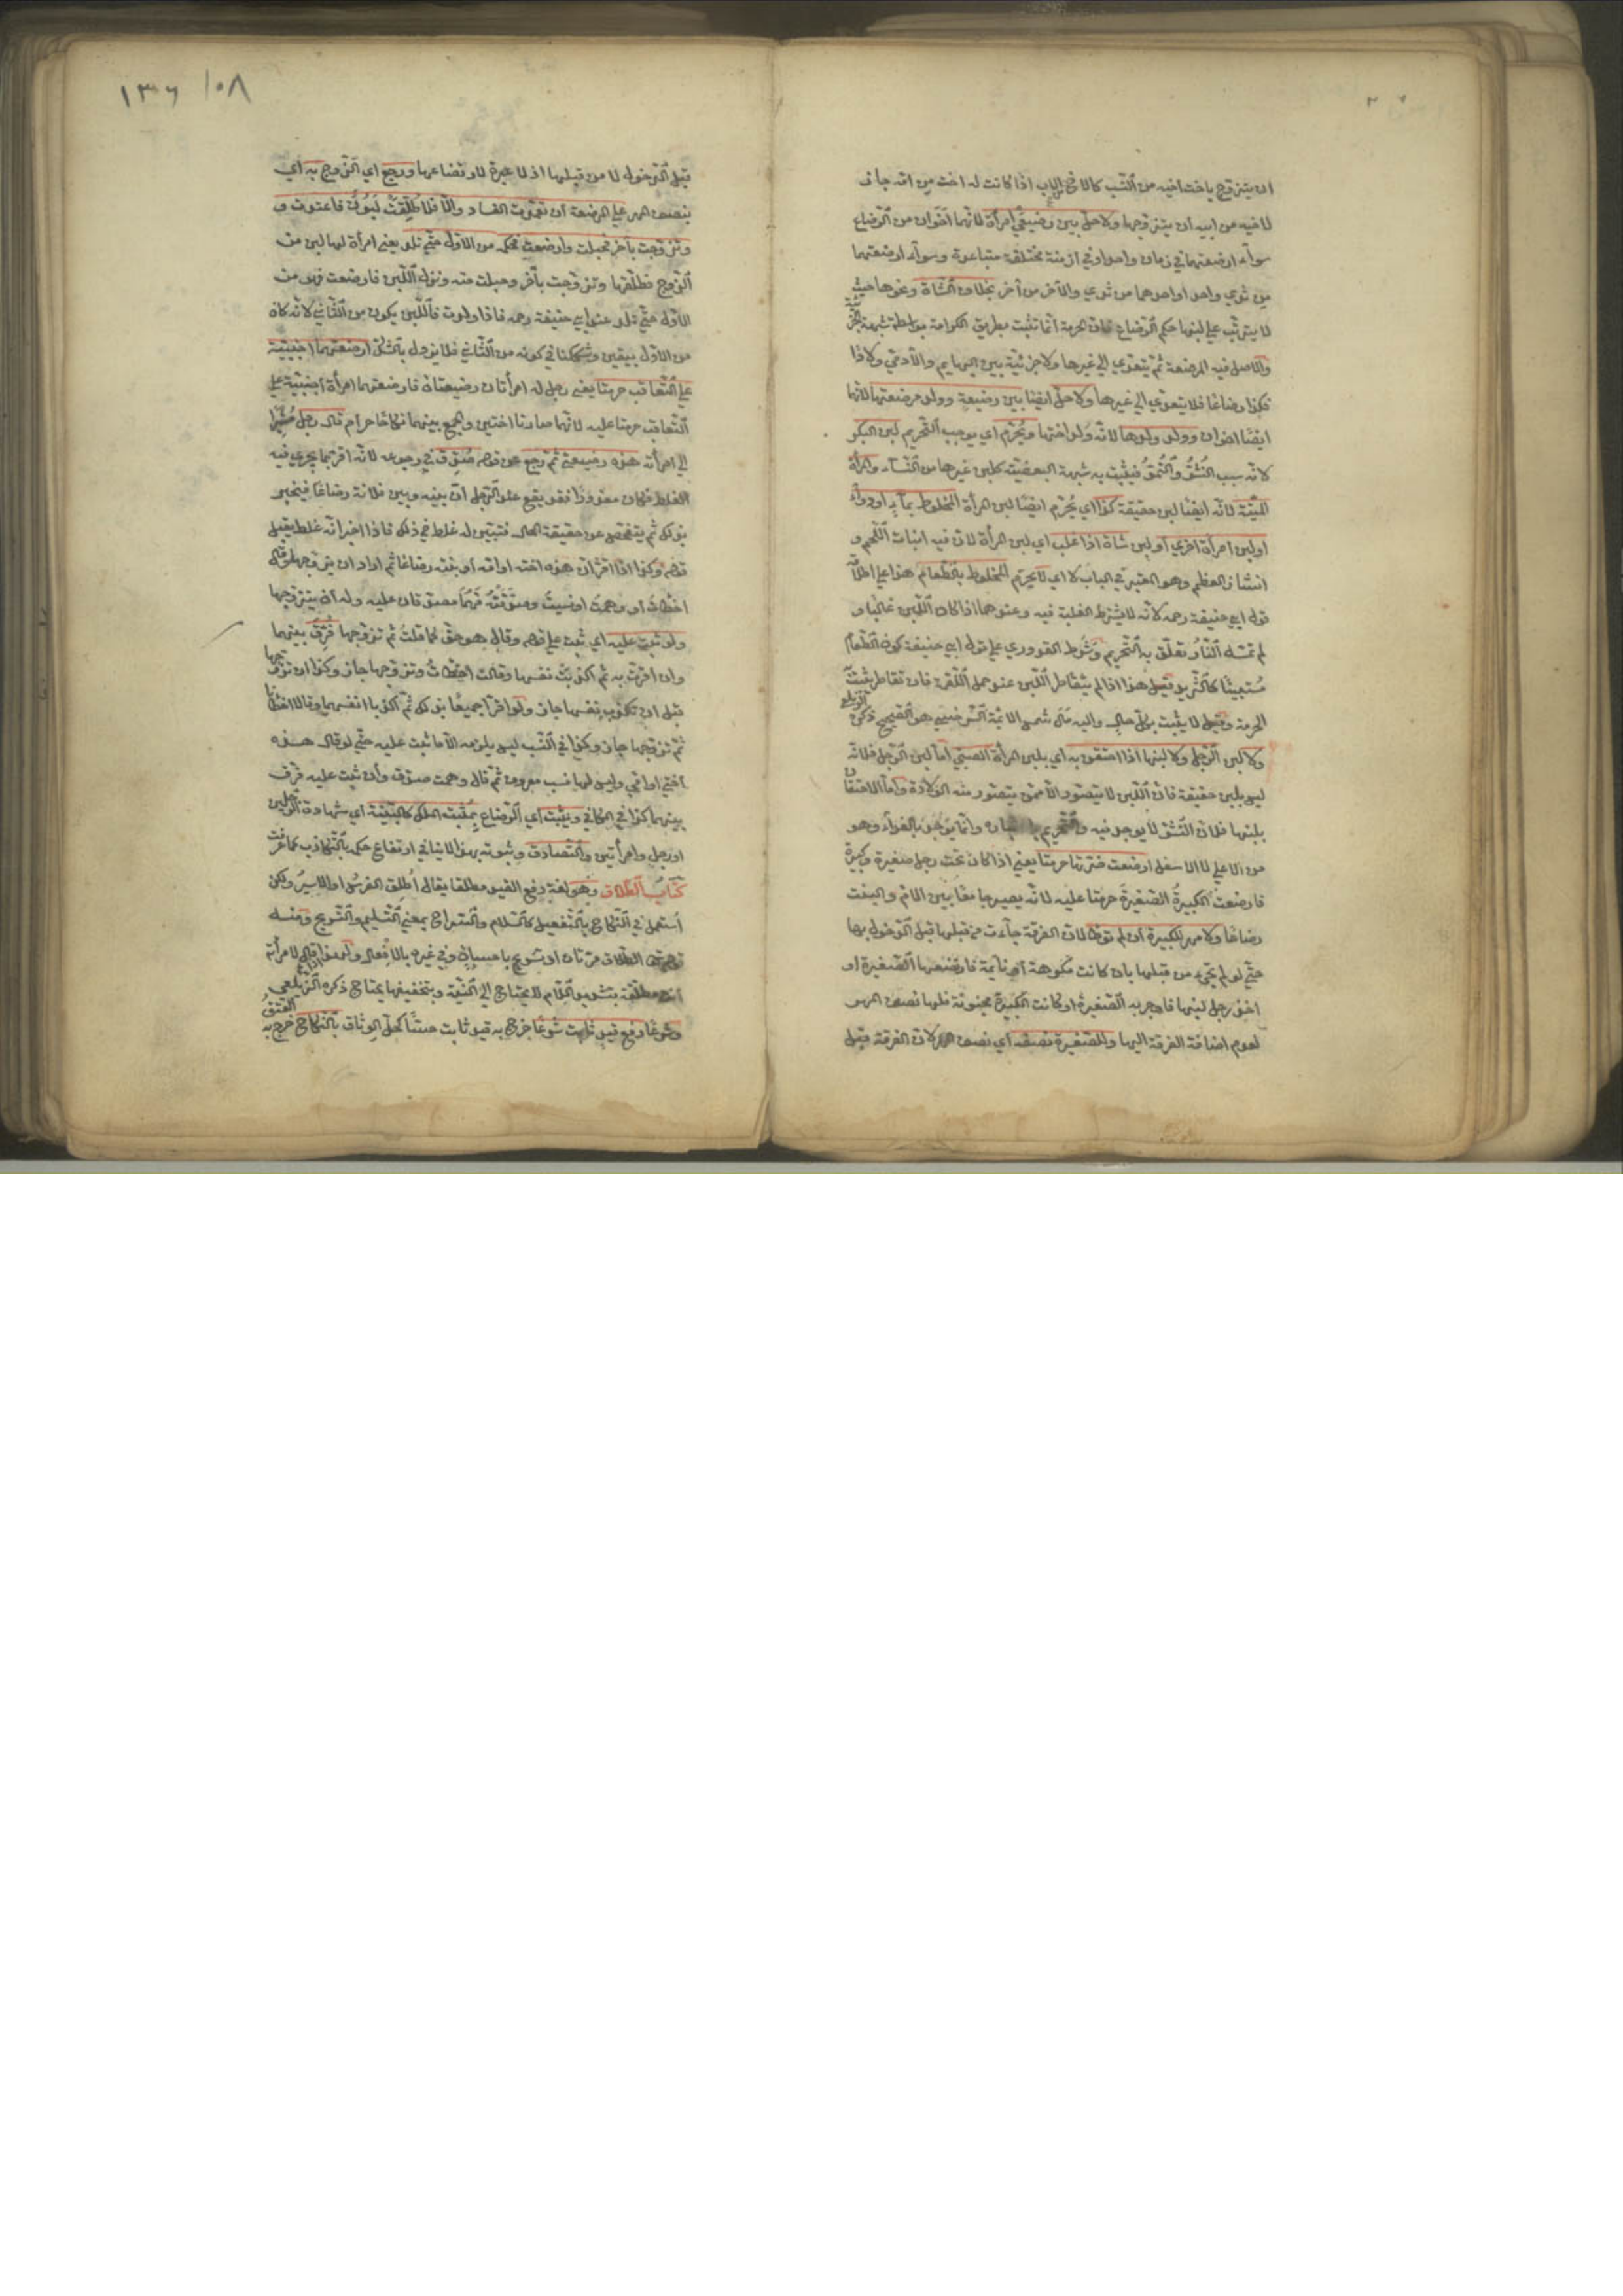 ان يتزوج باخت اخيه من النسب كالاخ لاب اذا كانت له اخت من امه جاز
لاخيه من ابيه ان يتزوجها ولا حل بين رضيعي امرأة لانهما اخوان من الرضاع
سواء ارضعتهما في زمان واحد او في ازمنة مختلفة متباعدة وسواء ارضعتهما
من ثدي واحد او احدهما من ثدي والآخر من آخر بخلاف الشاة ونحوها حيث
لا يترتب على لبنها حكم الرضاع فان الحرمة انما تثبت بطريق الكرامة بواسطة شبهة الجزئية
والاصل فيه المرضعة ثم يتعدى الى غيرها ولا جزئية بين البهايم والآدمي ولادا
فكذا رضاعا فلا يتعدى الى غيرها ولا حل ايضا بين رضيعة وولد مرضعتها لانهما
ايضا اخوان وولد ولدها لانه ولد اختها ويحرم اي يوجب التحريم لبن البكر
لانه سبب النشؤ والنمو فيثبت به شبهة البعضية كلبن غيرها من النساء والمرأة
الميتة لانه ايضا لبن حقيقة كذا اي يحرم ايضا لبن المرأة المخلوط بماء او دواء
او لبن امرأة اخرى او لبن شاة اذا غلب اي لبن المرأة لان فيه انبات اللحم و
انشاز العظم وهو المعتبر في الباب لا اي لا يحرم المخلوط بالطعام هذا على اطلاقه
قول ابي حنيفة رحمه لانه لا يشترط الغلبة فيه وعندهما اذا كان اللبن غالبا و
لم تمسه النار تعلق به التحريم وشرط القدوري على قول ابي حنيفة كون الطعام
مستبينا كالثريد قيل هذا اذا لم يتقاطر اللبن عند حمل اللقمة فان تقاطر يثبت
الحرمة وقيل لا يثبت بكل حال واليه مال شمس الائمة السرخسي هو الصحيح ذكره الزيلعي
ولا لبن الرجل ولا لبنها اذا احتقن به اي بلبن المرأة الصبي اما لبن الرجل فلانه
ليس بلبن حقيقة فان اللبن لا يتصور الا ممن يتصور منه الولادة واما الاحتقان
بلبنها فلان النشؤ لا يوجد فيه والتحريم وانما يوجد بالغداء وهو
من الاعلى لا الاسفل ارضعت ضرتها حرمتا يعني اذا كان تحت رجل صغيرة وكبيرة
فارضعت الكبيرة الصغيرة حرمتا عليه لانه يصير جامعا بين الام والبنت
رضاعا ولا مهر للكبيرة ان لم توطأ لان الفرقة جاءت من قبلها قبل الدخول بها
حتى لو لم تجئ من قبلها بان كانت مكرهة او نائمة فارتضعتها الصغيرة او
اخذ رجل لبنها فاوجر به الصغيرة او كانت الكبيرة مجنونة فلها نصف المهر
لعدم اضافة الفرقة اليها وللصغيرة نصفه اي نصف المهر لان الفرقة قبل
١٣٦ ١٠٨
قبل الدخول لا من قبلها اذ لا عبرة لارتضاعها ورجع اي الزوج به اي
بنصف المهر على المرضعة ان تعمدت الفساد والا فلا طلقت لبون فاعتدت و
وتزوجت بآخر فحبلت وارضعت فحكمه من الاول حتى تلد يعني امرأة لها لبن من
الزوج فطلقها وتزوجت بآخر وحبلت منه ونزل اللبن فارضعت فهو من
الاول حتى تلد عند ابي حنيفة رحمه فاذا ولدت فاللبن يكون من الثاني لانه كان
من الاول بيقين وشككنا في كونه من الثاني فلا يزول بالشك ارضعتهما اجنبية
على التعاقب حرمتا يعني رجل له امرأتان رضيعتان فارضعتهما امرأة اجنبية على
التعاقب حرمتا عليه لانهما صارتا اختين والجمع بينهما نكاحا حرام قال رجل مشيرا
الى امرأته هذه رضيعتي ثم رجع عن قوله صدق في رجوعه لانه اقر بما يجري فيه
الغلط فكان معذورا فقد يقع عند الرجل ان بينه وبين فلانة رضاعا فيخبر
بذلك ثم يتفحص عن حقيقة الحال فتبين له غلط في ذلك فاذا اخبر انه غلط يقبل
قوله وكذا اذا اقر ان هذه اخته او امه او بنته رضاعا ثم اراد ان يتزوجها وقال
اخطأت او وهمت او نسيت وصدقته فهما مصدقان عليه وله ان يتزوجها
ولو ثبت عليه اي ثبت على قوله وقال هو حق كما قلت ثم تزوجها فرق بينهما
وان اقرت به ثم اكذبت نفسها وقالت اخطأت وتزوجها جاز وكذا ان تزوجها
قبل ان تكذب نفسها جاز ولو اقرا جميعا بذلك ثم اكذبا انفسهما وقالا اخطأنا
ثم تزوجها جاز وكذا في النسب ليس يلزمه الا ما ثبت عليه حتى لو قال هذه
اختي او امي وليس لها نسب معروف ثم قال وهمت صدق وان ثبت عليه فرق
بينهما كذا في الكافي ويثبت اي الرضاع بمثبت الملك كالبينة اي شهادة الرجلين
او رجل وامرأتين والتصادق وثبوته بهذا لا ينافي ارتفاع حكمه بالتكاذب كما عرفت
كتاب الطلاق وهو لغة رفع القيد مطلقا يقال اطلق الفرس والاسير ولكن
استعمل في النكاح بالتفعيل كالسلام والسراح بمعنى التسليم والتسريح ومنه
الطلاق مرتان او تسريح باحسان وفي غيره بالافعال ولهذا اذا قال لامرأته
انت مطلقة بتشديد اللام لا يحتاج الى النية وبتخفيفها يحتاج ذكره الزيلعي
وشرعا رفع قيد ثابت شرعا خرج به قيد ثابت حسا كحل الوثاق بالنكاح خرج به العتق